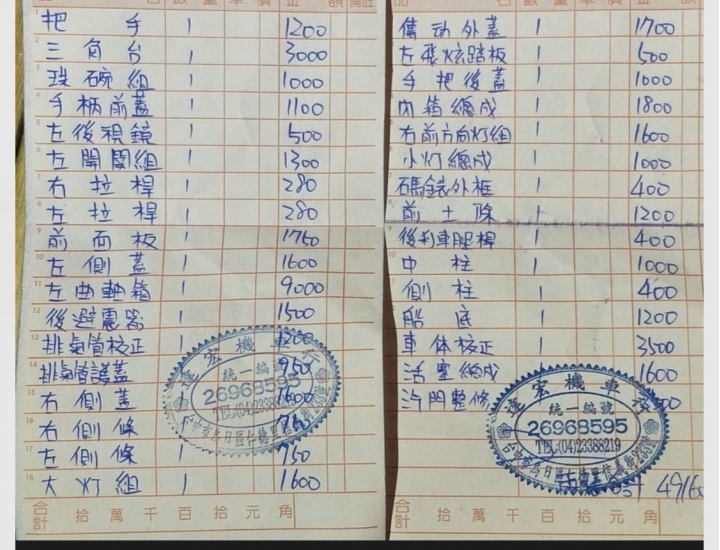 把手 1 1200
三角台 1 3000
珠碗組 1 1000
手柄前蓋 1 1100
左後視鏡 1 500
左開關組 1 1300
右拉桿 1 280
左拉桿 1 280
前面板 1 1750
左側蓋 1 1600
左曲軸箱 1 9000
後避震器 1 1500
排氣管校正 1 1200
排氣管護蓋 1 950
右側蓋 1 1600
右側條 1
左側條 1 750
大灯組 1 1600
合計 拾萬千百拾元角
達宏機車行
統一編號
26968595
TEL:(04)23388219
傳动外蓋 1 1700
左飛炫踏板 1 500
手把後蓋 1 1000
內箱總成 1 1800
右前方向灯組 1 1600
小灯總成 1 1000
碼錶外框 1 400
前土除 1 1200
後刹車腿桿 1 400
中柱 1 1000
側柱 1 400
船底 1 1200
車体校正 1 3500
活塞總成 1 1600
汽門整修
達宏機車行
統一編號
26968595
TEL:(04)23388219
合計 拾萬千百拾元角